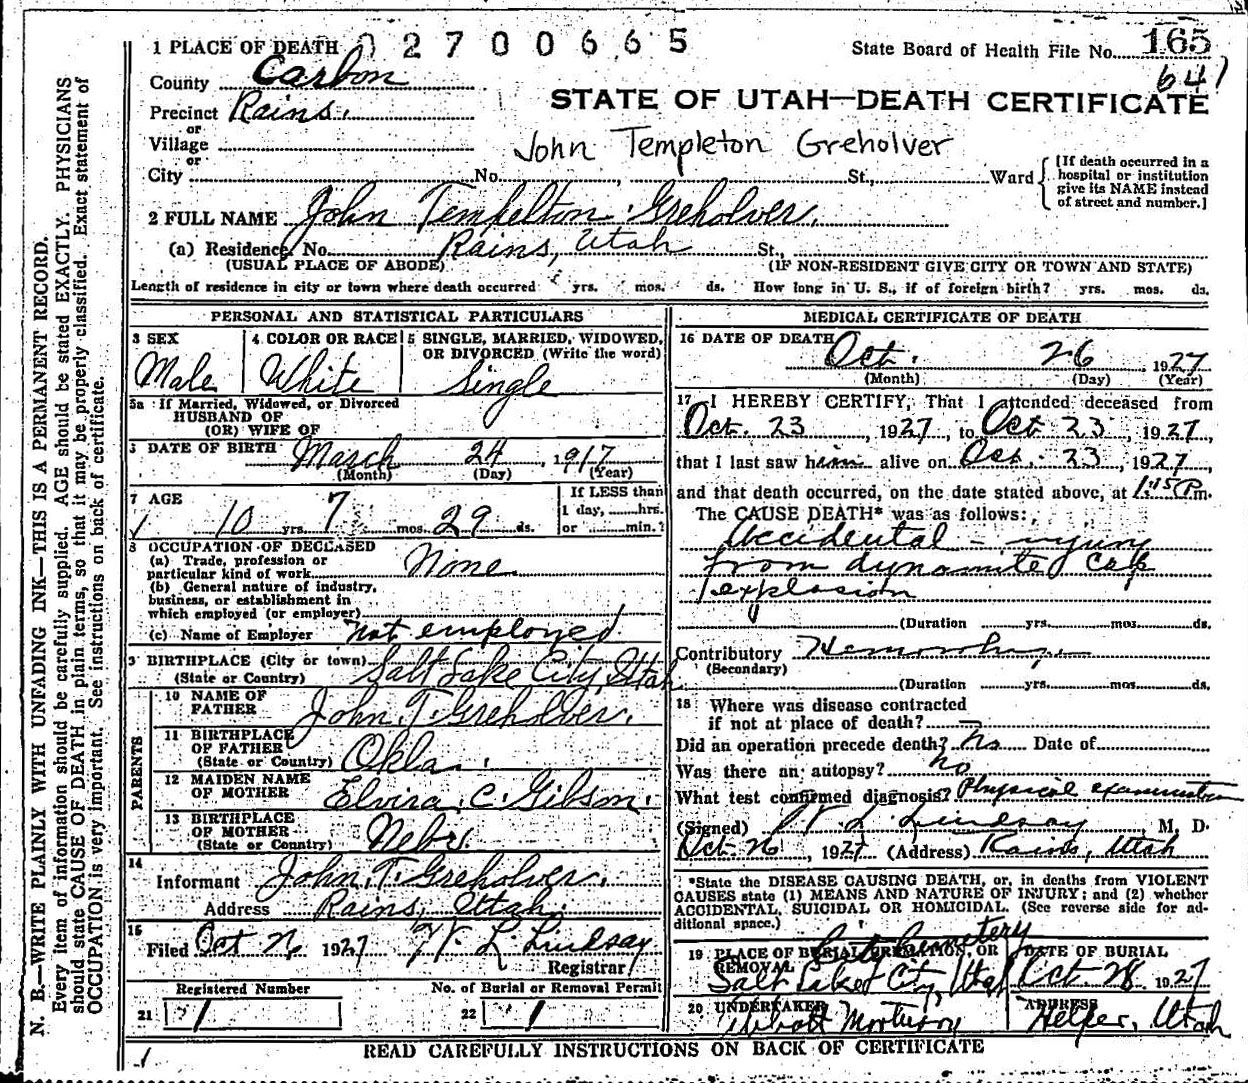 1 PLACE OF DEATH 0 2 7 0 0 6 6 5
State Board of Health File No. 165
647
County Carbon
Precinct Rains.
or
Village
or
City No. , St., Ward
STATE OF UTAH—DEATH CERTIFICATE
John Templeton Greholver
[If death occurred in a hospital or institution give its NAME instead of street and number.]
2 FULL NAME John Tempelton Greholver.
(a) Residence No. Rains, Utah St.,
(USUAL PLACE OF ABODE) (IF NON-RESIDENT GIVE CITY OR TOWN AND STATE)
Length of residence in city or town where death occurred yrs. mos. ds. How long in U. S., if of foreign birth? yrs. mos. ds.
PERSONAL AND STATISTICAL PARTICULARS
3 SEX
Male
4 COLOR OR RACE
White
5 SINGLE, MARRIED, WIDOWED, OR DIVORCED (Write the word)
Single
5a If Married, Widowed, or Divorced
HUSBAND OF
(OR) WIFE OF
DATE OF BIRTH March 24, 1917
(Month) (Day) (Year)
7 AGE
10 yrs. 7 mos. 29 ds.
If LESS than 1 day, hrs. or min.?
8 OCCUPATION OF DECEASED
(a) Trade, profession or particular kind of work None
(b) General nature of industry, business, or establishment in which employed (or employer)
(c) Name of Employer not employed
9 BIRTHPLACE (City or town) Salt Lake City, Utah
(State or Country)
PARENTS
10 NAME OF FATHER John T. Greholver.
11 BIRTHPLACE OF FATHER (State or Country) Okla.
12 MAIDEN NAME OF MOTHER Elvira C. Gibson.
13 BIRTHPLACE OF MOTHER (State or Country) Nebr.
14
Informant John T. Greholver.
Address Rains, Utah.
15
Filed Oct 26 1927 W. L. Lindsay
Registrar
Registered Number No. of Burial or Removal Permit
21 1 22 1
MEDICAL CERTIFICATE OF DEATH
16 DATE OF DEATH Oct. 26 1927
(Month) (Day) (Year)
17 I HEREBY CERTIFY, That I attended deceased from
Oct. 23, 1927, to Oct 23, 1927,
that I last saw him alive on Oct. 23, 1927,
and that death occurred, on the date stated above, at 1:45 P.m.
The CAUSE DEATH* was as follows:
Accidental - injury
from dynamite cap
explosion
(Duration yrs. mos. ds.
Contributory Hemorrhage
(Secondary)
(Duration yrs. mos. ds.
18 Where was disease contracted
if not at place of death? —
Did an operation precede death? No Date of
Was there an autopsy? no
What test confirmed diagnosis? Physical examination
(Signed) W. L. Lindsay M. D.
Oct. 26, 1927 (Address) Rains, Utah
*State the DISEASE CAUSING DEATH, or, in deaths from VIOLENT
CAUSES state (1) MEANS AND NATURE OF INJURY; and (2) whether
ACCIDENTAL, SUICIDAL OR HOMICIDAL. (See reverse side for ad-
ditional space.)
19 PLACE OF BURIAL, CREMATION, OR REMOVAL City Cemetery
Salt Lake City, Utah
DATE OF BURIAL
Oct. 28 1927
20 UNDERTAKER
Mortuary
ADDRESS
Helper, Utah
READ CAREFULLY INSTRUCTIONS ON BACK OF CERTIFICATE
N. B.—WRITE PLAINLY WITH UNFADING INK—THIS IS A PERMANENT RECORD.
Every item of information should be carefully supplied. AGE should be stated EXACTLY. PHYSICIANS
should state CAUSE OF DEATH in plain terms, so that it may be properly classified. Exact statement of
OCCUPATION is very important. See instructions on back of certificate.